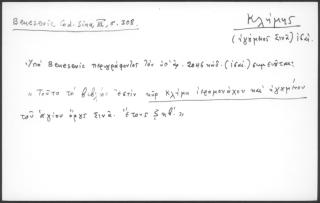 Benešević Cod. Sina, III, σ. 308.
Κλήμης
(ἡγούμενος Σινᾶ) ἰδέ.
Ὑπὸ Benešević περιγράφοντος τὸν ὑπ' ἀρ. 2046 κώδ. (ἰδέ.) σημειοῦται:
« Τοῦτο τὸ βιβλίον ἐστὶν κῦρ Κλήμη ἱερομονάχου καὶ ἡγουμένου
τοῦ ἁγίου ὄρους Σινᾶ. Ἔτους ζκθ´. »